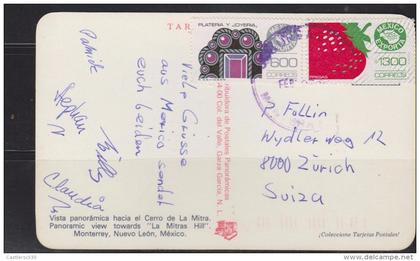 TAR
PLATERIA Y JOYERIA
600
CORREOS
MEXICO
EXPORTA
FRESAS
1300
CORREOS
FEB
Patrick
Stephan
Claudia
Viele Grüsse
aus Mexico sendet
euch beiden
ribuidora de Postales Panorámicas
Col. del Valle, Garza García, N. L.
P. Follin
Wydlerweg 12
8000 Zürich
Suiza
Vista panorámica hacia el Cerro de La Mitra.
Panoramic view towards "La Mitras Hill".
Monterrey, Nuevo León, México.
¡Coleccione Tarjetas Postales!